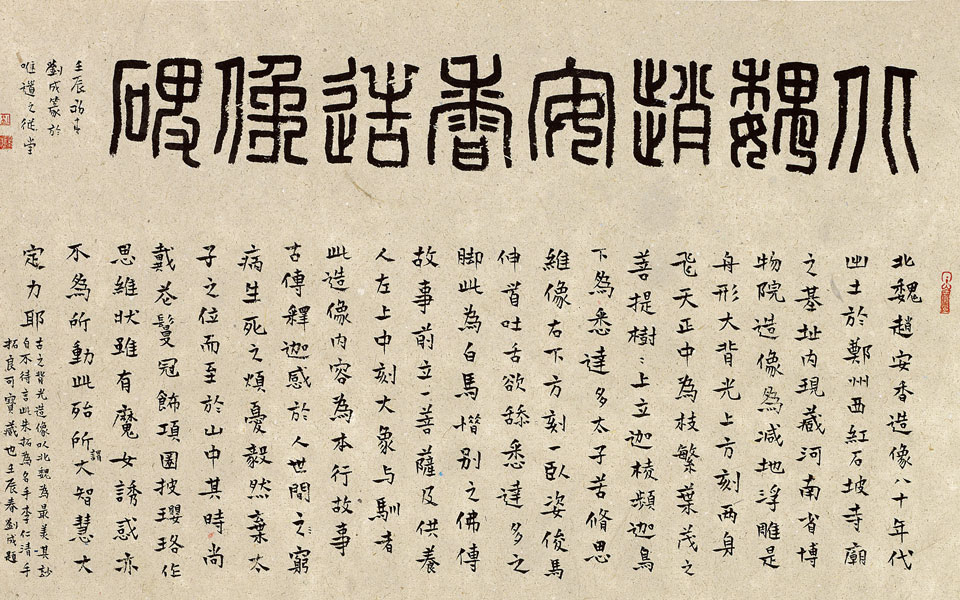 北魏趙安香造像碑
壬辰初春
劉成篆於
唯遺之從堂
北魏趙安香造像八十年代
出土於鄭州西紅石坡寺廟
之基址內現藏河南省博
物院造像為減地浮雕是
舟形大背光上方刻兩身
飛天正中為枝繁葉茂之
菩提樹〻上立迦棱頻迦鳥
下為悉達多太子苦脩思
維像右下方刻一臥姿俊馬
伸首吐舌欲舔悉達多之
脚此為白馬惜别之佛傳
故事前立一菩薩及供養
人左上中刻大象与馴者
此造像內容為本行故事
古傳釋迦感於人世間之窮
病生死之煩憂毅然棄太
子之位而至於山中其時尚
戴花鬘冠飾項圈披瓔珞作
思維狀雖有魔女誘惑亦
不為所動此殆所謂大智慧大
定力耶
古之背光造像以北魏為最美其妙
自不待言此朱拓為名手李仁清手
拓良可寶藏也壬辰春劉成題